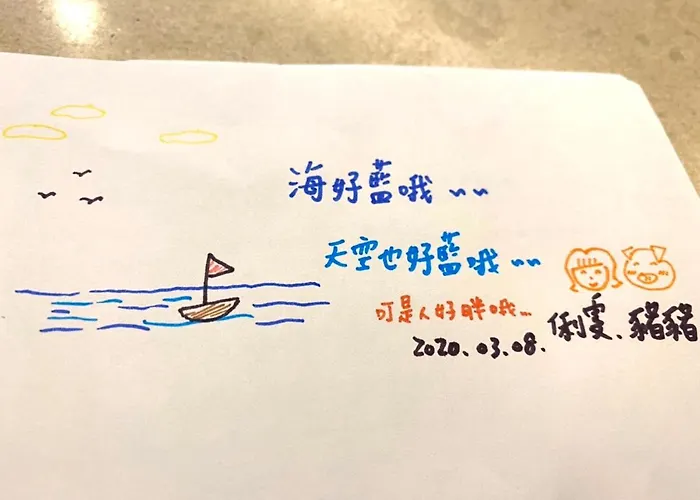 海好藍哦~~
天空也好藍哦~~
叮是人好胖哦...
2020.03.08.
俐雯、豬豬